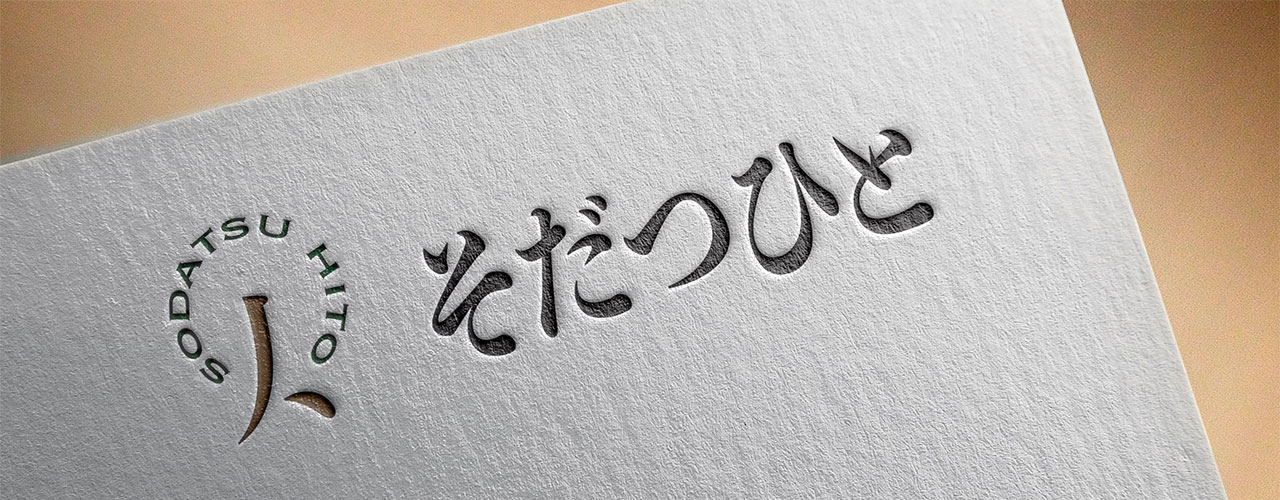 SODATSU HITO
人
そだつひと